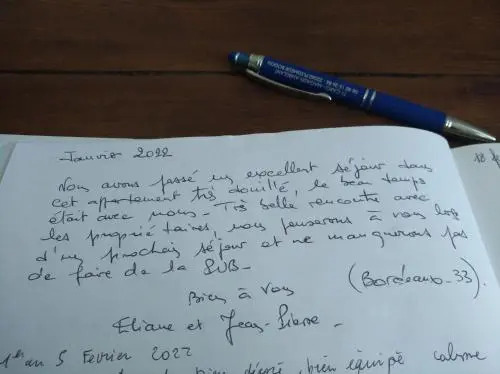 Janvier 2022
18 f
Nous avons passé un excellent séjour dans
cet appartement très douillé, le beau temps
était avec nous - Très belle rencontre avec
les propriétaires, nous penserons à vous lors
d'un prochain séjour et ne manquerons pas
de faire de la PUB -
(Bordeaux - 33).
Bien à vous
Eliane et Jean-Pierre -
1er au 5 Fevrier 2022
bien équipé calme